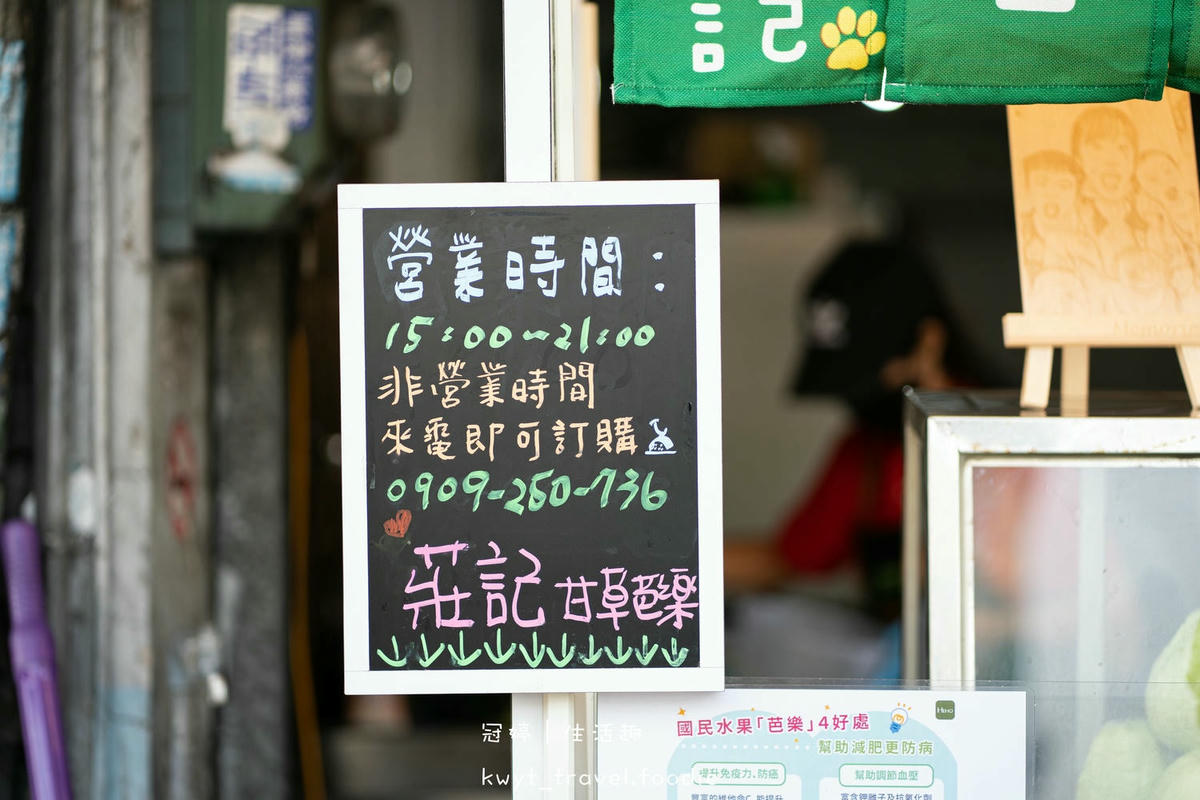 記
營業時間：
15:00~21:00
非營業時間
來電即可訂購
0909-250-736
莊記 甘草芭樂
國民水果「芭樂」4好處
幫助減肥更防病
提升免疫力、防癌
幫助調節血壓
富含鉀離子及抗氧化劑
冠婷｜生活趣